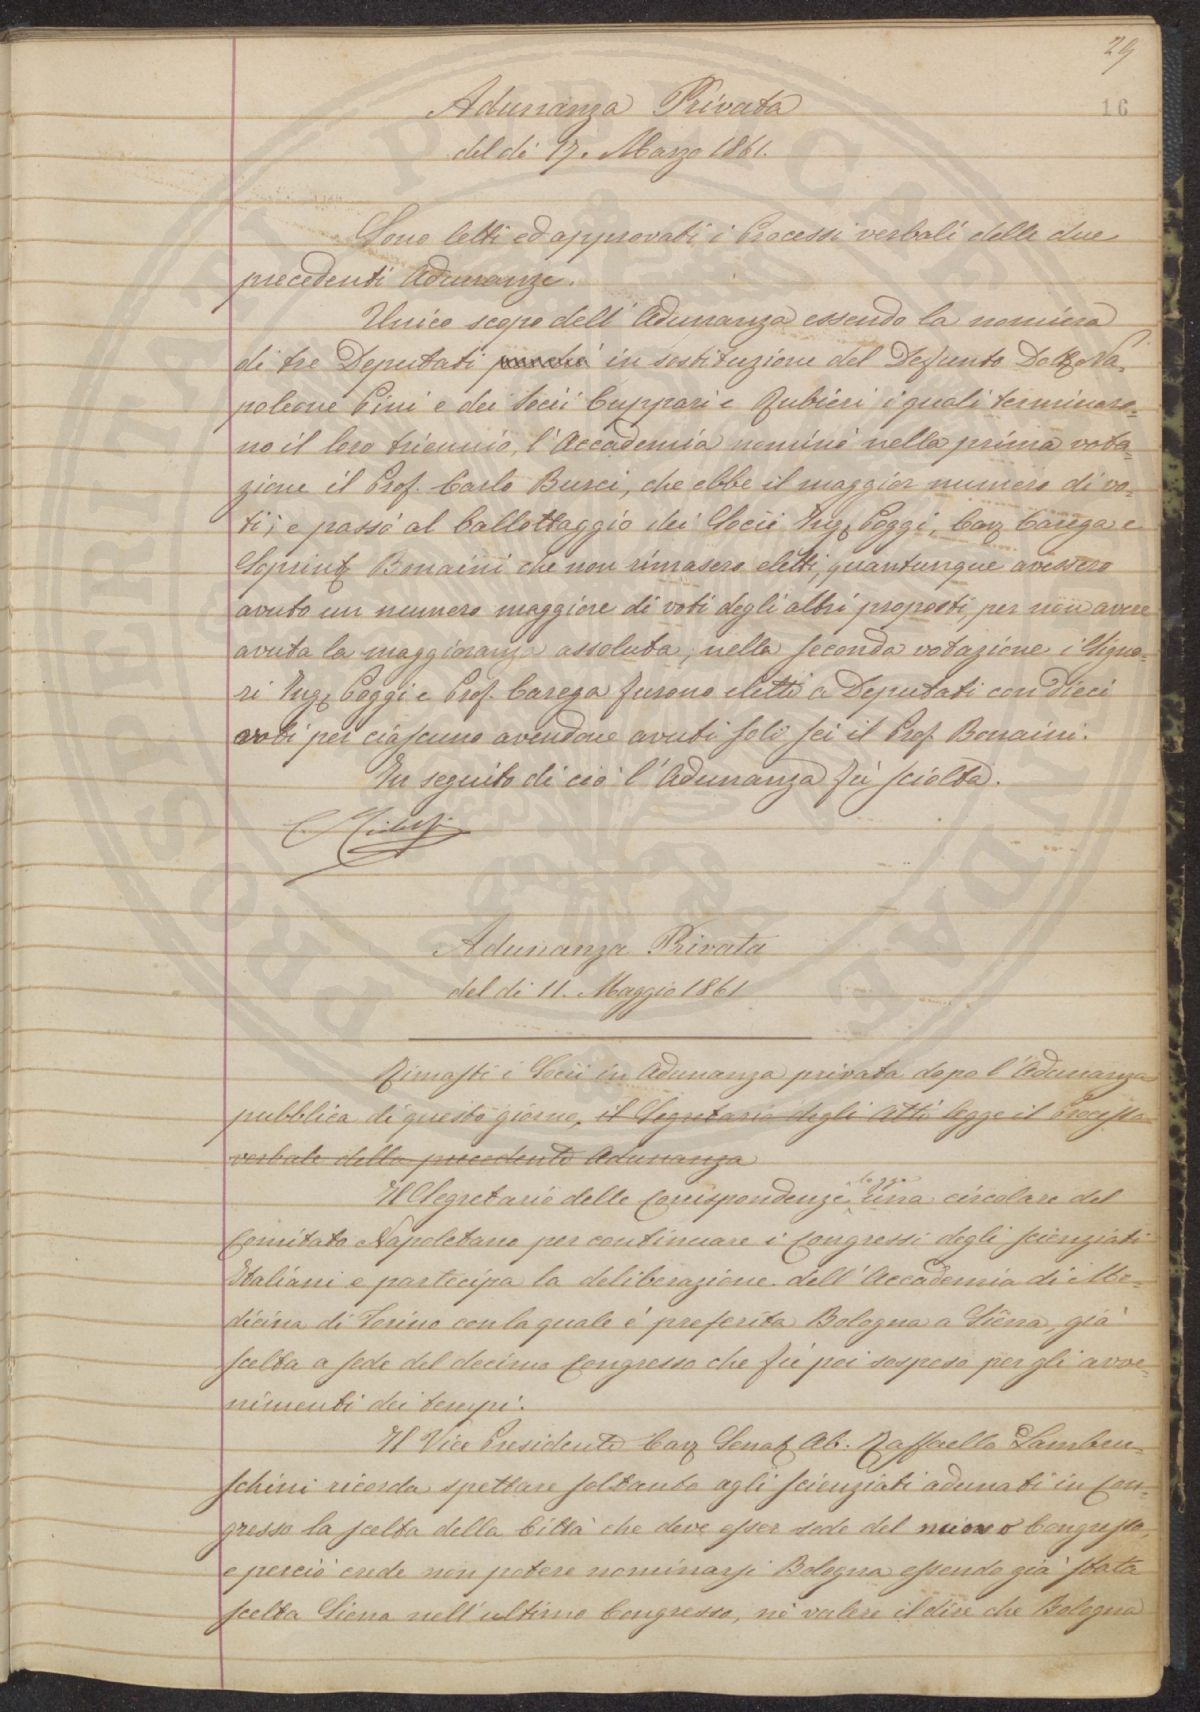 29
16
Adunanza Privata
del dì 17. Marzo 1861.
Sono letti ed approvati i Processi verbali delle due
precedenti Adunanze.
Unico scopo dell' Adunanza essendo la nomina
di tre Deputati in sostituzione del Defunto Dott. Na-
poleone Pini e dei Socii Cuppari e Rubieri i quali terminaro-
no il loro triennio, l'Accademia nominò nella prima vota-
zione il Prof. Carlo Burci, che ebbe il maggior numero di vo-
ti; e passò al ballottaggio dei Socii Ing. Poggi, Cav. Carega e
Soprint. Bonaini che non rimasero eletti, quantunque avessero
avuto un numero maggiore di voti degli altri proposti, per non avere
avuta la maggioranza assoluta; nella seconda votazione i Signo-
ri Ing. Poggi e Prof. Carega furono eletti a Deputati con dieci
voti per ciascuno avendone avuti soli sei il Prof. Bonaini.
In seguito di ciò l'Adunanza fù sciolta.
C. Ridolfi
Adunanza Privata
del dì 11. Maggio 1861
Rimasti i Socii in Adunanza privata dopo l'Adunanza
pubblica di questo giorno, il Segretario degli Atti legge il Processo
verbale della precedente Adunanza
Il Segretario delle Corrispondenze legge una circolare del
Comitato Napoletano per continuare i Congressi degli scienziati
Italiani e partecipa la deliberazione dell'Accademia di Me-
dicina di Torino con la quale è preferita Bologna a Siena, già
scelta a sede del decimo Congresso che fù poi sospeso per gli avve-
nimenti dei tempi.
Il Vice Presidente Cav. Senat. Ab. Raffaello Lambru-
schini ricorda spettare soltanto agli scienziati adunati in Con-
gresso la scelta della Città che deve esser sede del nuovo Congresso,
e perciò crede non potere nominarsi Bologna essendo già stata
scelta Siena nell'ultimo Congresso, nè valere il dire che Bologna
PROSPERITATI PUBLICAE AUGENDAE